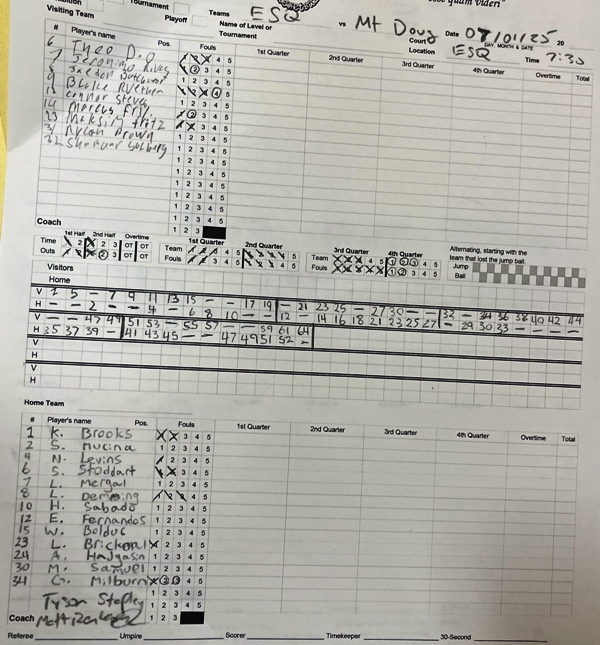 Tournament
Teams ESQ vs Mt Doug Date 07/01/25 20
Visiting Team
Playoff
Name of Level or Tournament
Court
DAY, MONTH & DATE
Location ESQ Time 7:30
# Player's name Pos. Fouls 1st Quarter 2nd Quarter 3rd Quarter 4th Quarter Overtime Total
6 Tyeo D.O 1 2 3 4 5
7 Jeronimo 1 2 3 4 5
8 Jaedon 1 2 3 4 5
9 Blake 1 2 3 4 5
Connor Steves 1 2 3 4 5
14 Marcus 1 2 3 4 5
23 Maksim Fritz 1 2 3 4 5
31 Dylan Brown 1 2 3 4 5
32 1 2 3 4 5
1 2 3 4 5
1 2 3 4 5
1 2 3 4 5
1 2 3 4 5
Coach 1 2 3
1st Half 2nd Half Overtime 1st Quarter 2nd Quarter 3rd Quarter 4th Quarter
Time Outs
Team Fouls
Team Fouls
Alternating, starting with the team that lost the jump ball.
Jump Ball
Visitors
Home
V 2 5 - 7 9 11 13 15 - - 17 19 - 21 23 25 - 27 30 - - 32 - 34 36 38 40 42 44
H - - 2 - - 4 - 6 8 10 - - 12 - 14 16 18 21 23 25 27 - 29 30 33 - - - -
V - - 47 49 51 53 - 55 57 - - 59 61 64
H 35 37 39 - 41 43 45 - - 47 49 51 52 -
V
H
V
H
Home Team
# Player's name Pos. Fouls 1st Quarter 2nd Quarter 3rd Quarter 4th Quarter Overtime Total
1 K. Brooks 1 2 3 4 5
2 S. Mucina 1 2 3 4 5
4 N. Levins 1 2 3 4 5
6 S. Stoddart 1 2 3 4 5
7 L. Mergal 1 2 3 4 5
8 L. Demming 1 2 3 4 5
10 H. Sabado 1 2 3 4 5
12 E. Fernandos 1 2 3 4 5
15 W. Bolduc 1 2 3 4 5
23 L. 1 2 3 4 5
24 A. 1 2 3 4 5
30 M. Samuel 1 2 3 4 5
34 G. Milburn 1 2 3 4 5
Tyson 1 2 3 4 5
Coach Matt 1 2 3
Referee Umpire Scorer Timekeeper 30-Second